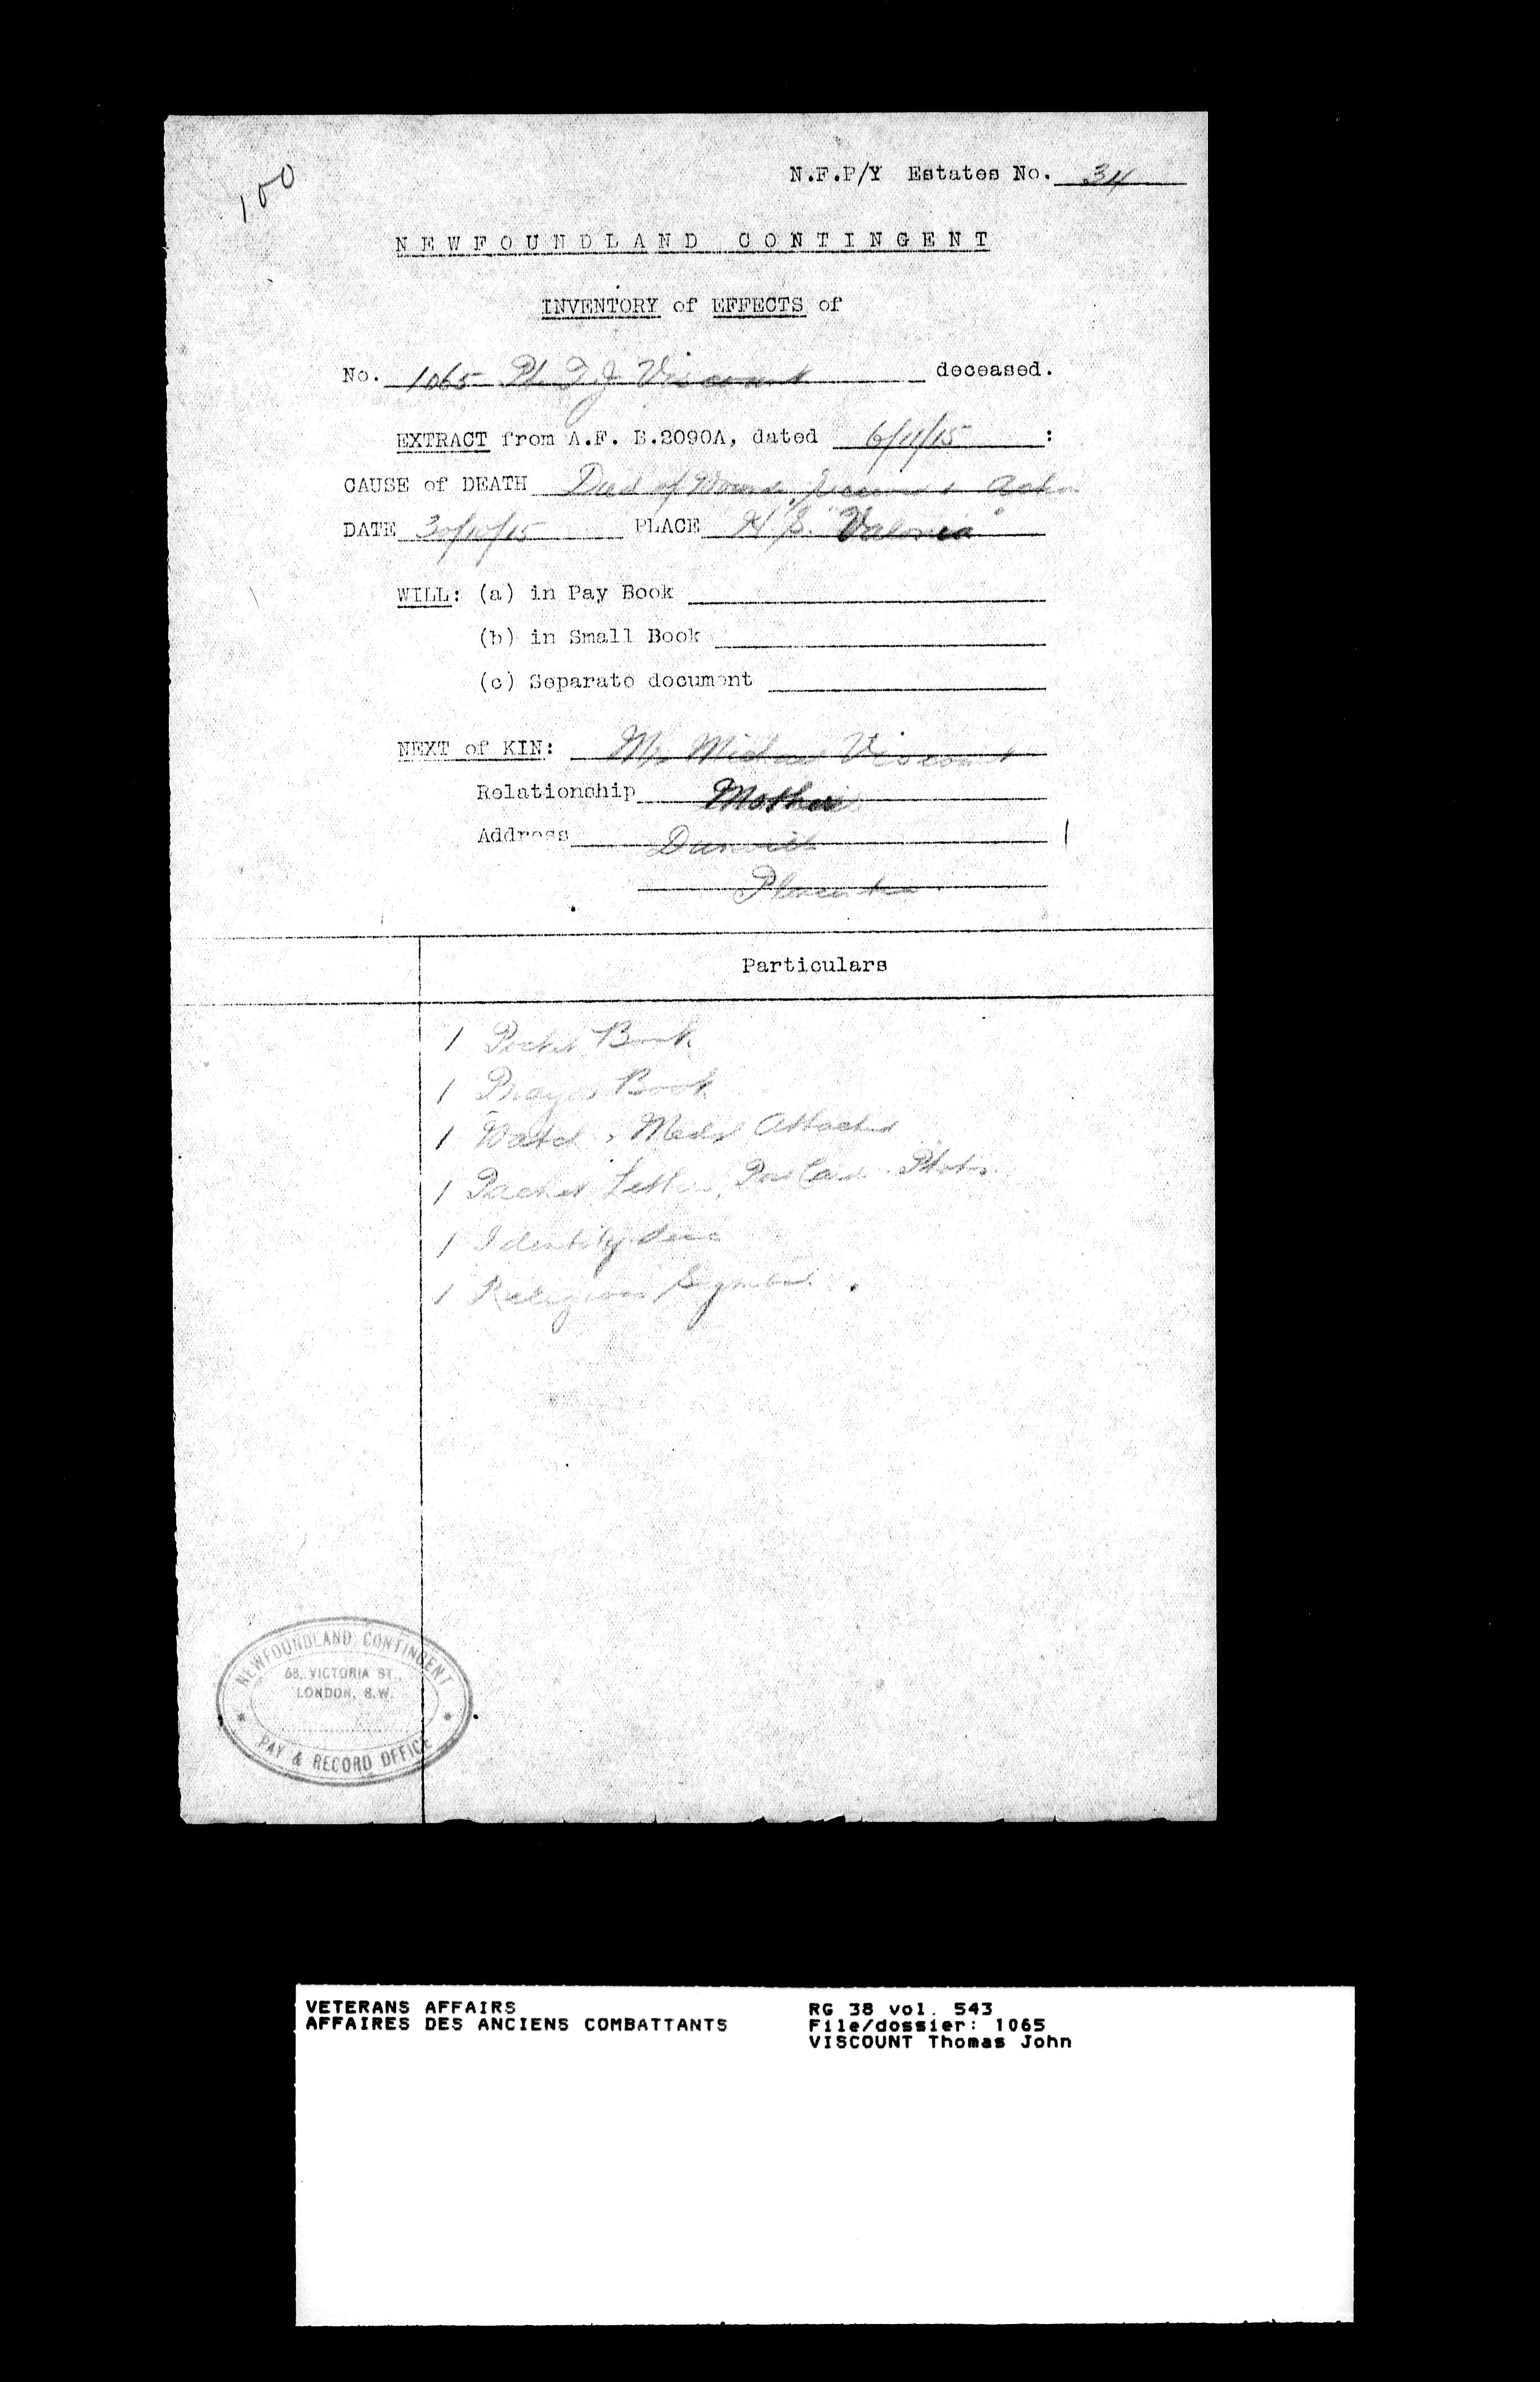 100
N.F.P/Y Estates No. 34
NEWFOUNDLAND CONTINGENT
INVENTORY of EFFECTS of
No. 1065 Pt. T. J Viscount deceased.
EXTRACT from A.F. B.2090A, dated 6/11/15 :
CAUSE of DEATH Died of Wounds, Action
DATE 30/10/15 PLACE H.S. "Valovia"
WILL: (a) in Pay Book
(b) in Small Book
(c) Separate document
NEXT of KIN: Mrs Michael Viscount
Relationship Mother
Address Dunville
Placentia
Particulars
1 Pocket Book
1 Prayer Book
1 Watch, Medal Attached
1 Packet Letters, Post Cards Photos
1 Identity disc
1 Religious Symbol.
NEWFOUNDLAND CONTINGENT
68, VICTORIA ST.,
LONDON, S.W.
PAY & RECORD OFFICE
VETERANS AFFAIRS RG 38 vol. 543
AFFAIRES DES ANCIENS COMBATTANTS File/dossier: 1065
VISCOUNT Thomas John